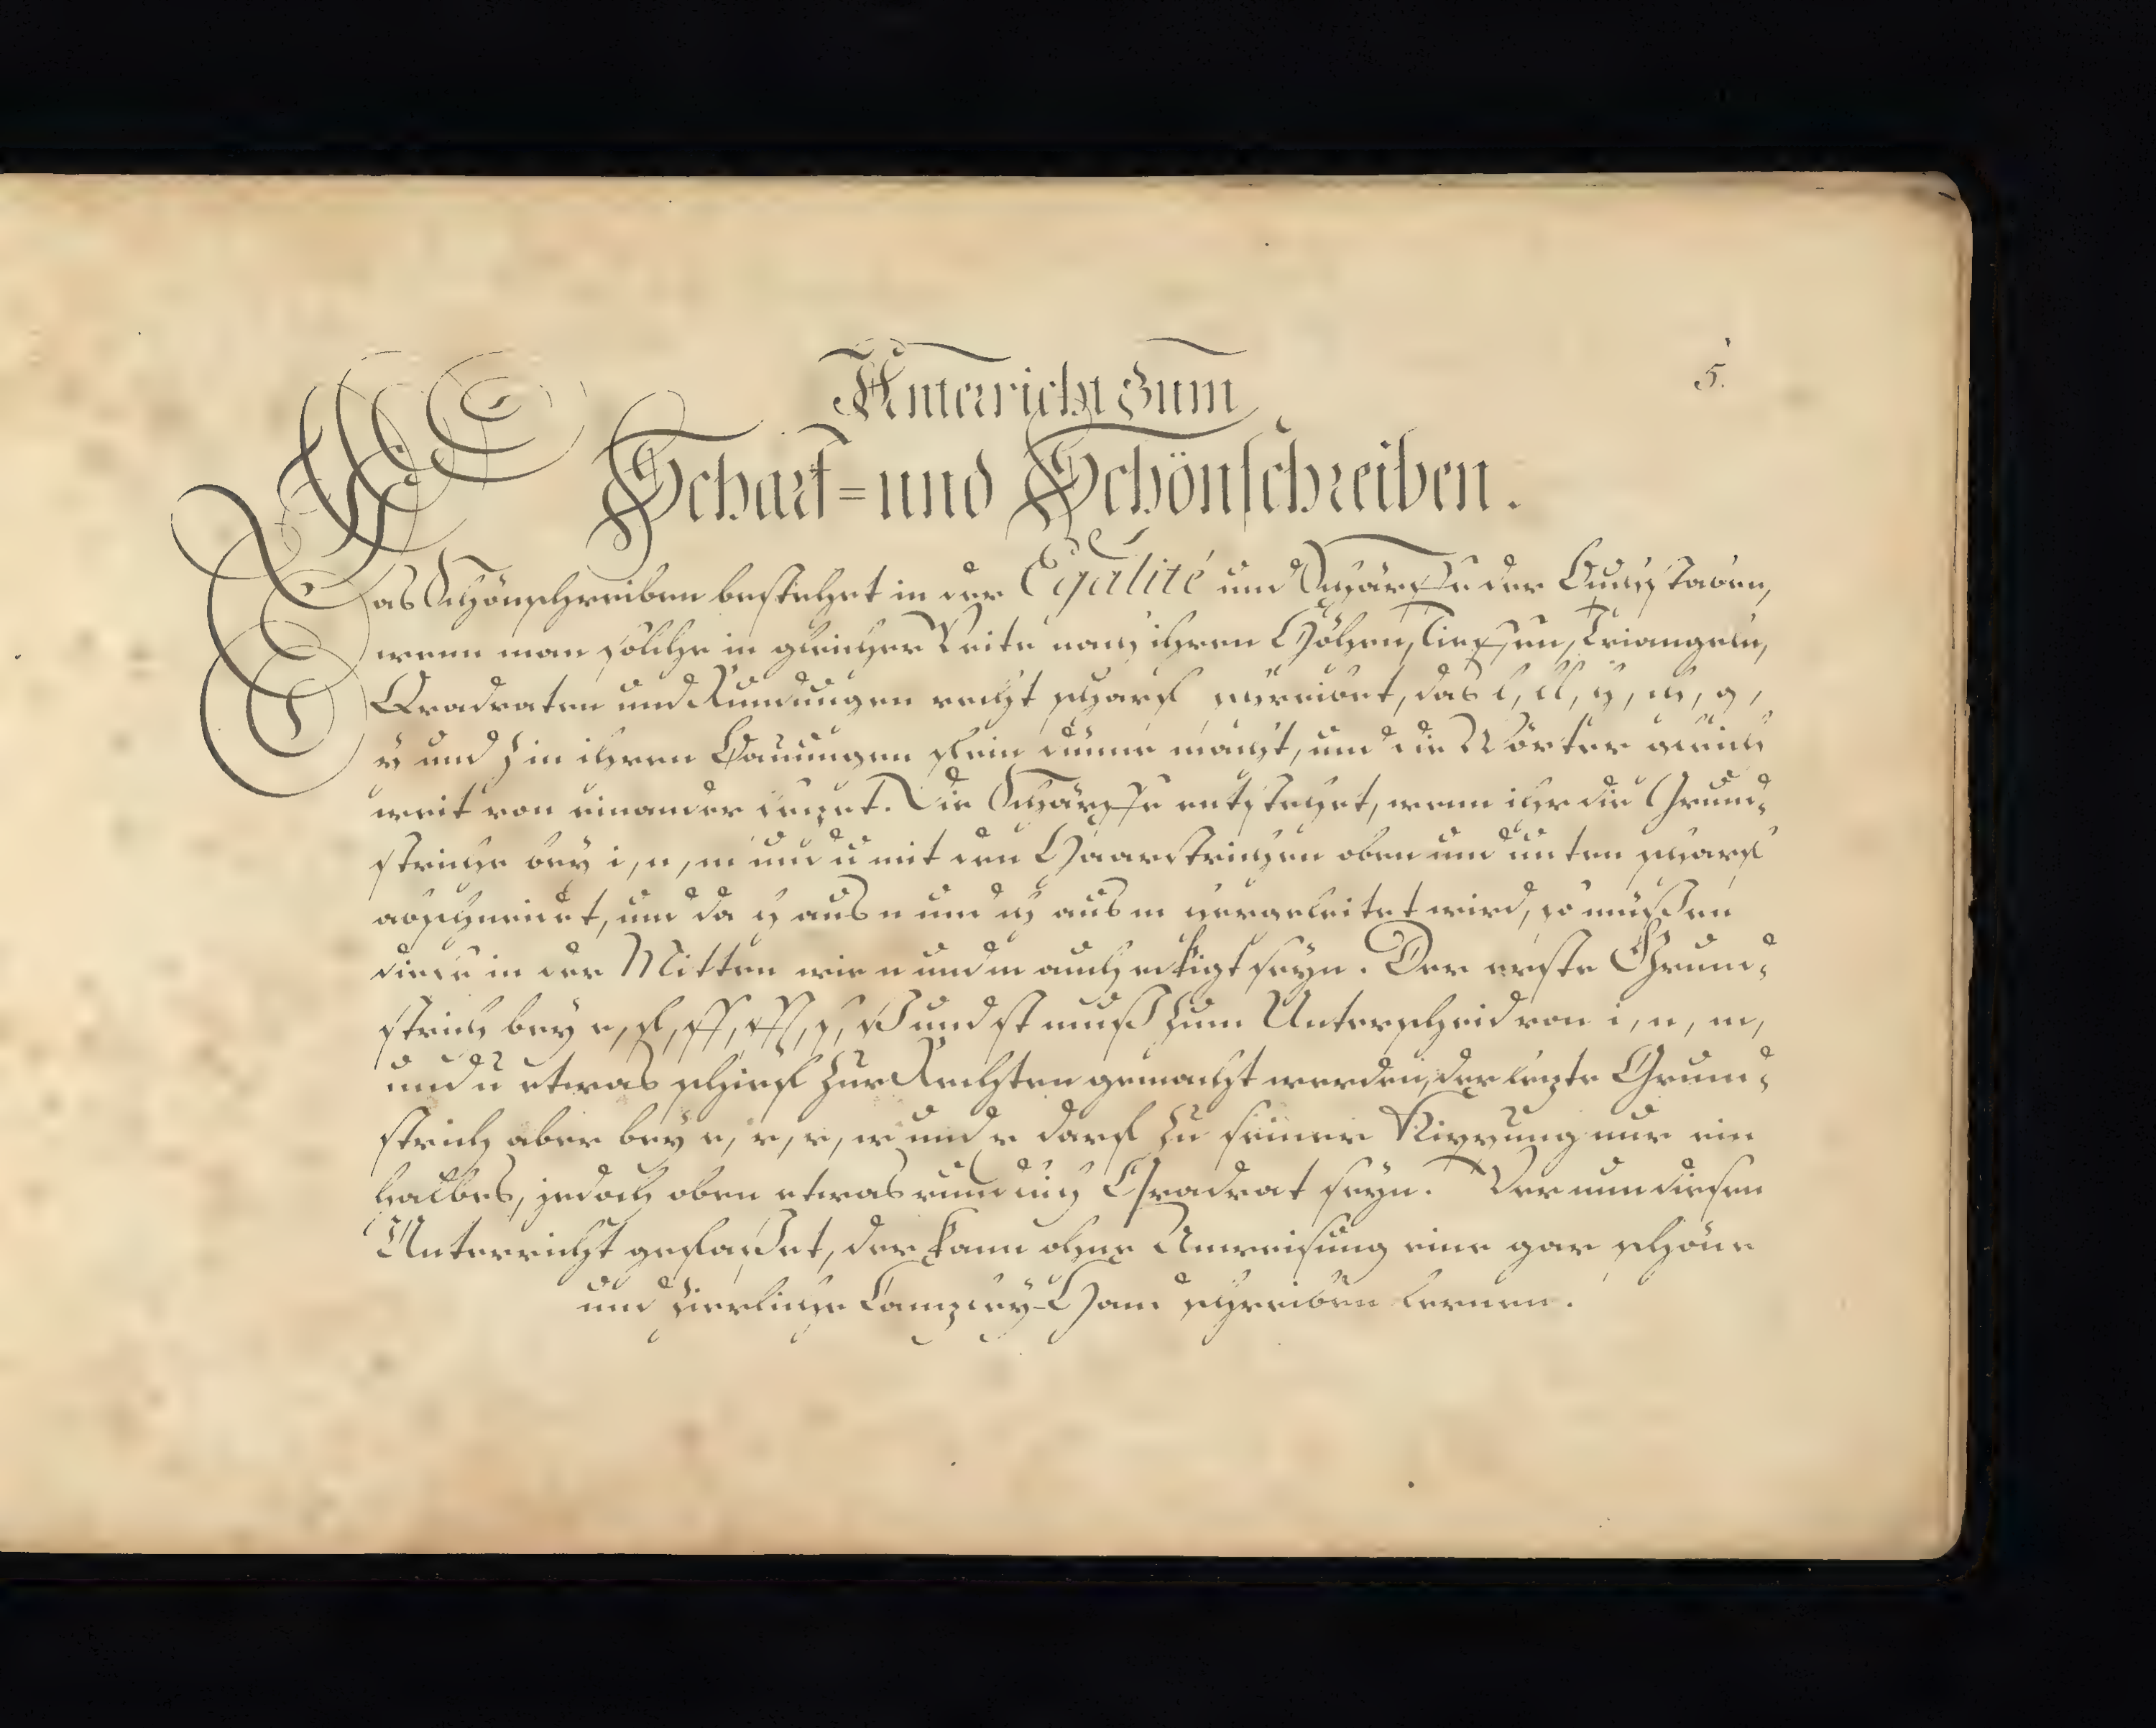 5.
Unterricht zum
Scharf- und Schönschreiben.
Das Schönschreiben bestehet in der Egalité und Schärffe der Buchstaben,
wenn man solche in gleicher Weite nach ihren Höhen, Tieffen, Triangeln,
Quadraten und Rundungen recht scharf schreibet, das l, ll, h, ch, g,
y und z in ihren Bäuchungen fein dünne macht, und die Wörter gleich
weit von einander setzet. Die Schärffe entstehet, wenn ihr die Grund-
striche bey i, n, m und u mit den Haarstrichen oben und unten scharf
abschneidet, und da y aus n und ch aus m hergeleitet wird, so müßen
diese in der Mitten wie n und m auch eckigt seyn. Der erste Grund-
strich bey e, f, ff, s, ß und st muß zum Unterscheid von i, n, m,
und u etwas schief zur Rechten gemacht werden, der letzte Grund-
strich aber bey v, r, w und darf zu seiner nur ein
halbes, jedoch oben etwas rundlich Quadrat seyn. Wer nun diesen
Unterricht gefaßet, der kann ohne Anweisung eine gar schöne
und zierliche Canzley-Hand schreiben lernen.